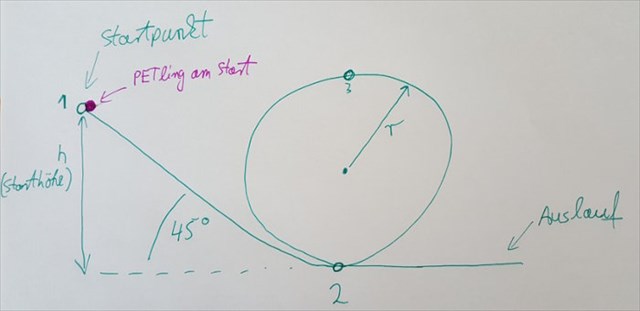 Startpunkt
PETling am Start
1
3
h
(Starthöhe)
r
45°
Auslauf
2